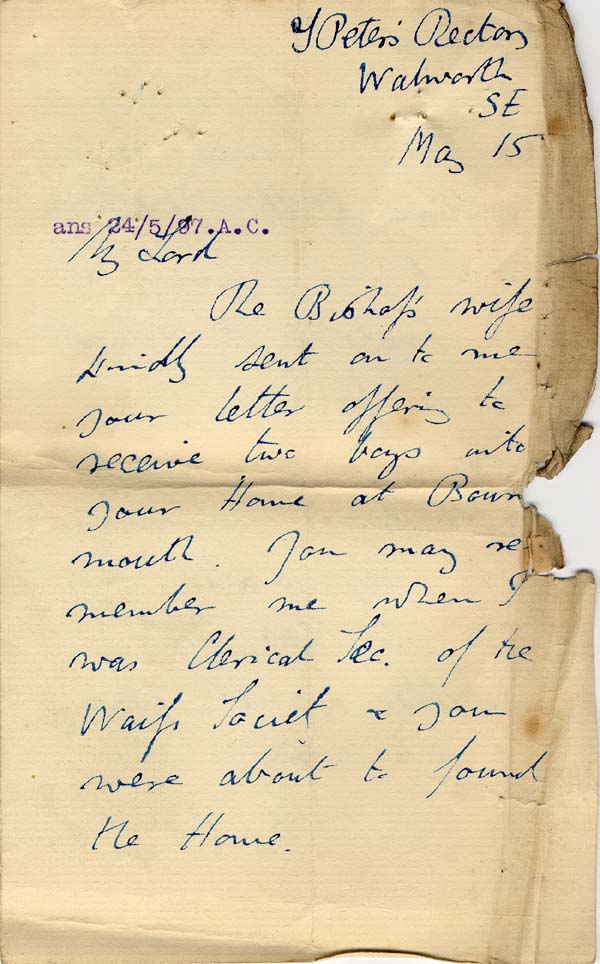 St Peter's Rectory
Walworth
SE
May 15
ans 24/5/97.A.C.
My Lord
The Bishop's wife
kindly sent on to me
your letter offering to
receive two boys into
your Home at Bourn
mouth. You may re
member me when I
was Clerical Sec. of the
Waifs Society & you
were about to found
the Home.